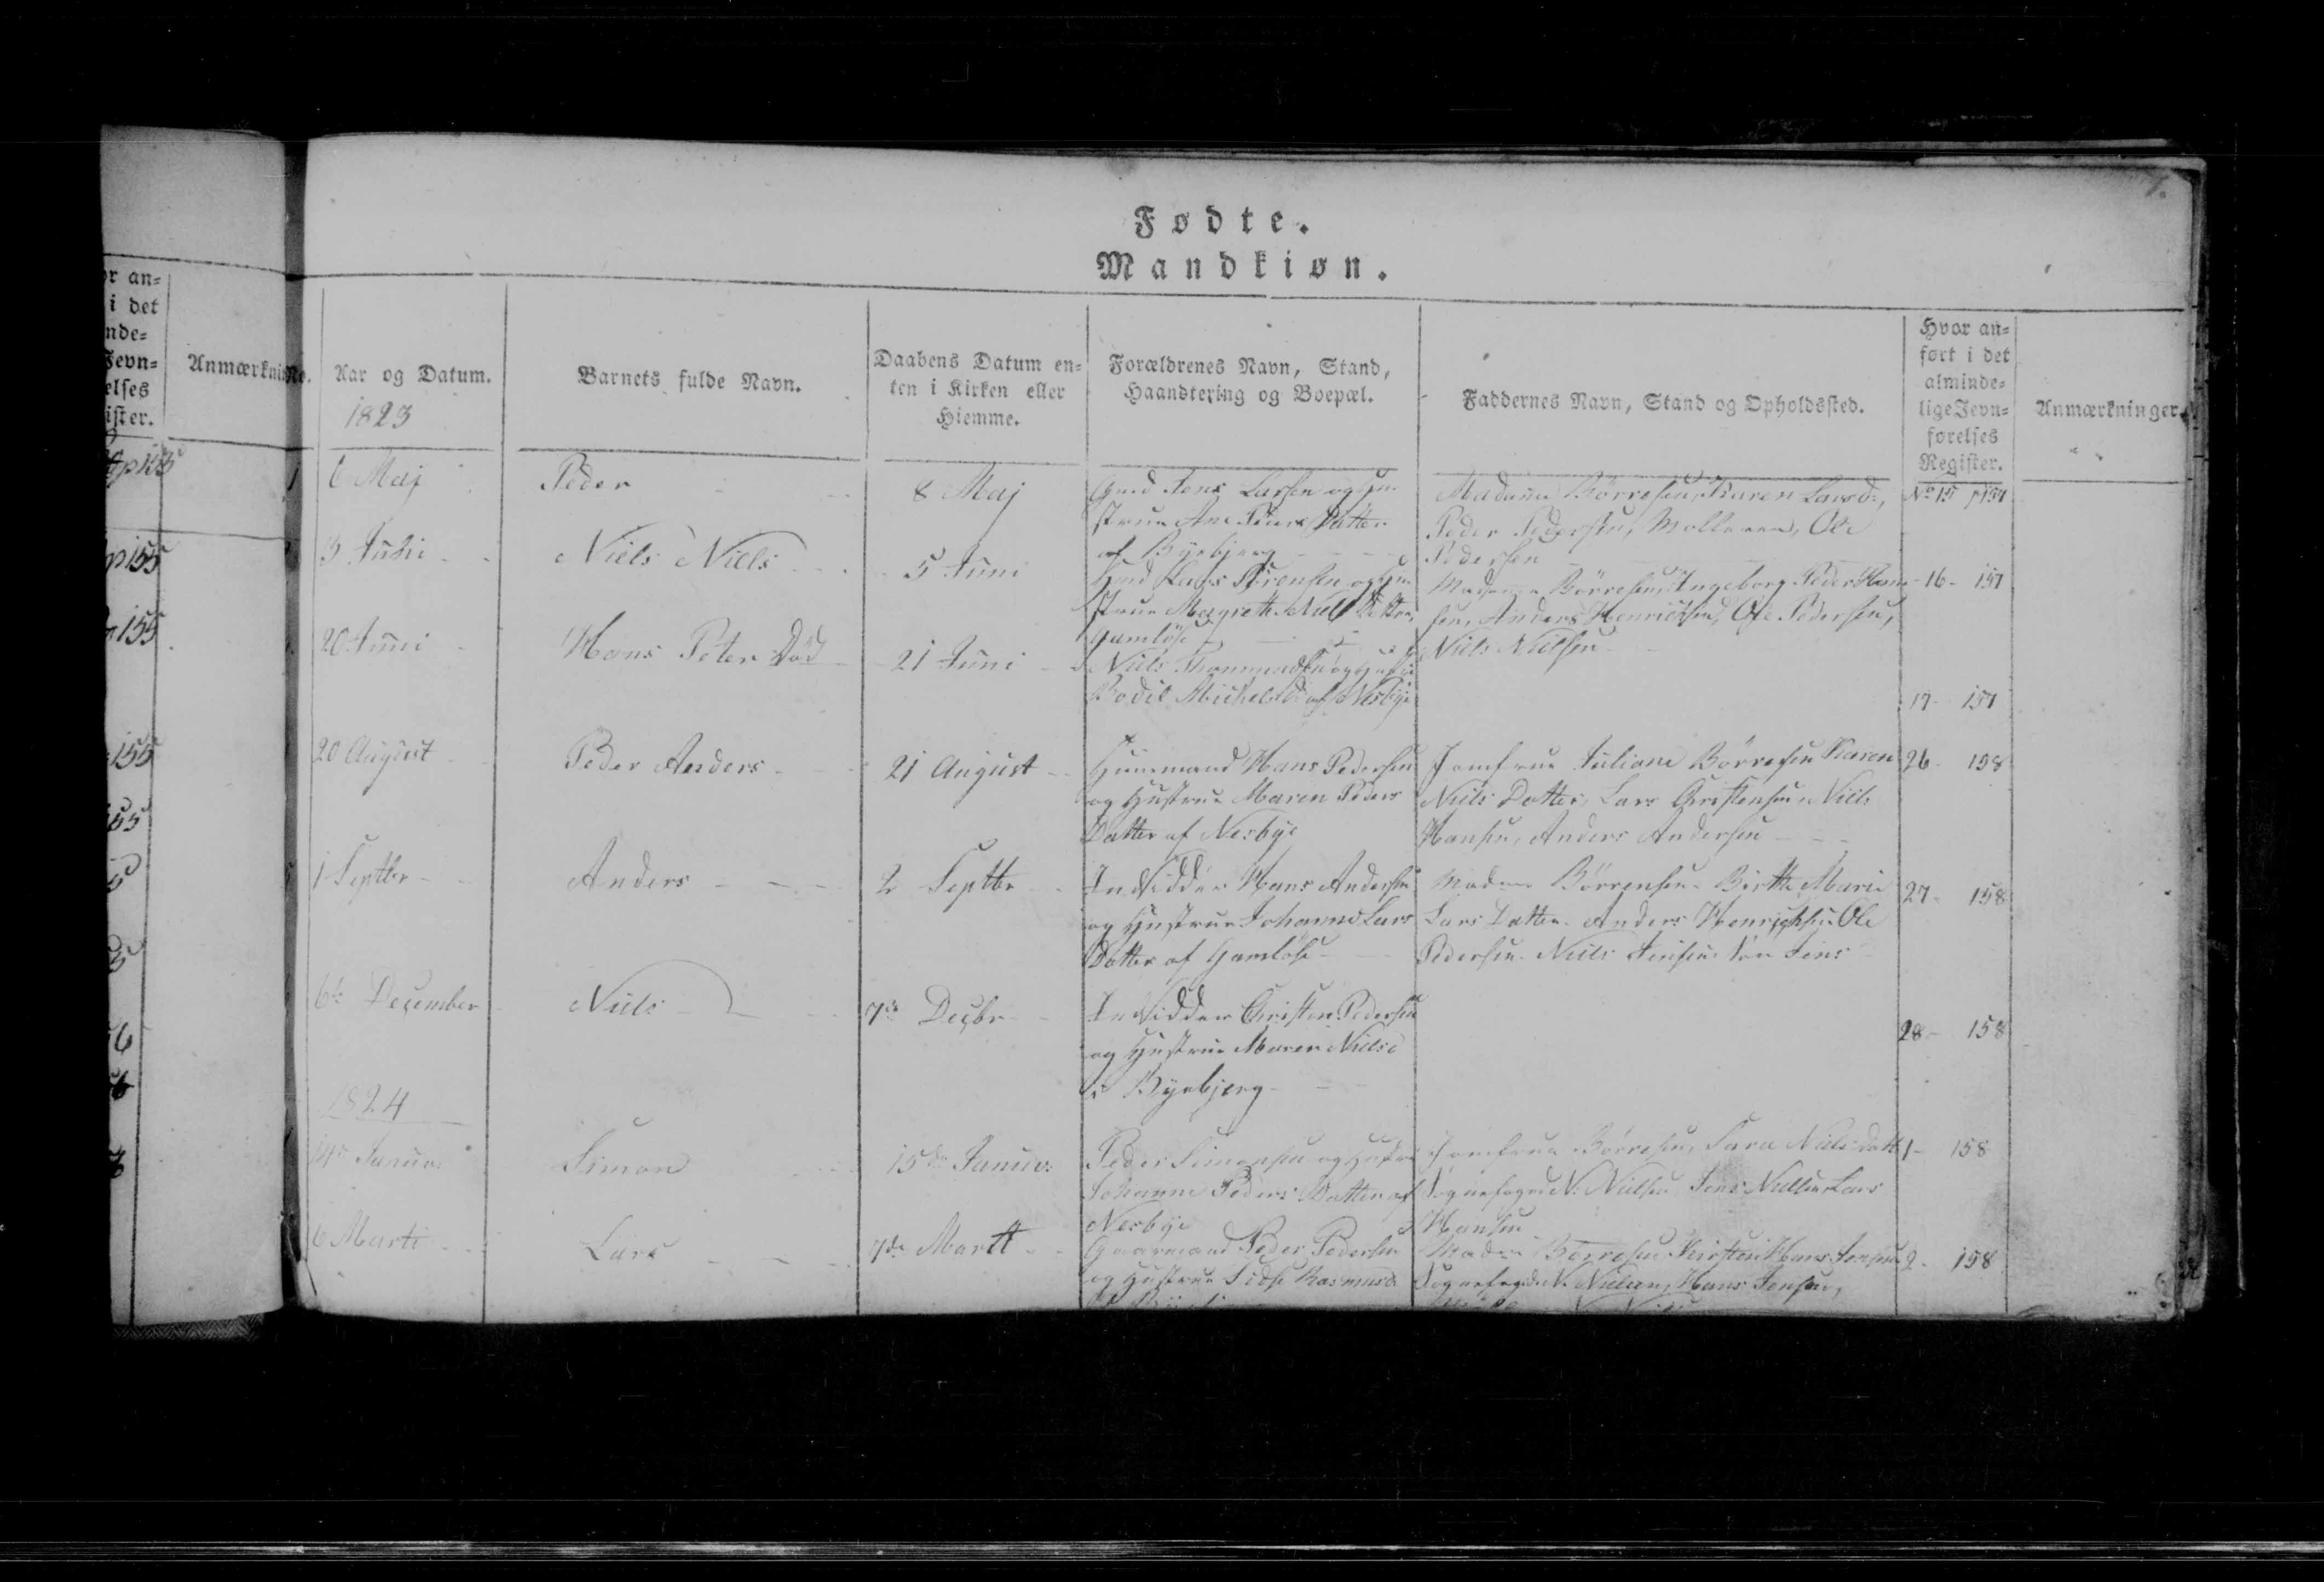 7.
Fødte.
Mandkiøn.
or an=
i det
nde=
Jevn=
elses
ister.
Anmærknin
No.
Aar og Datum.
1823
Barnets fulde Navn.
Daabens Datum en=
ten i Kirken eller
Hiemme.
Forældrenes Navn, Stand,
Haandtering og Boepæl.
Faddernes Navn, Stand og Opholdssted.
Hvor an=
ført i det
alminde=
lige Jevn=
førelses
Register.
Anmærkninger.
p 155
155
155
1
6 Maj
Peder
8 Maj
Gmd Jens Larsen og Hu
strue Ane Peders Datter
af Byebjerg
Madame Børresen, Karen Larsd:,
Peder Pedersen, Ole
Pedersen
No 15 p 157
3 Juni
Niels Niels
5 Juni
Hmd Lars Sørensen og Hu
strue Magrethe Niels Datter,
Gamløse
Madame Børresen, Ingeborg Peder Han
sen, Anders Henrichsen, Ole Pedersen,
Niels Nielsen
16 - 157
20 Juni
Hans Peter Død
21 Juni
Niels
Bodil Michelsd: af Nesbye
17 - 157
20 August
Peder Anders
21 August
Huusmand Hans Pedersen
og Hustrue Maren Peders
Datter af Nesbye
Jomfrue Juliane Børresen Karen
Niels Datter, Lars Christensen, Niels
Hansen, Anders Andersen
26 - 158
1 Septbr
Anders
2 Septbr
Indsidder Hans Andersen
og Hustrue Johanne Lars
Datter af Gamløse
Madme Børrensen Birthe Marie
Lars Datter Anders Henrichsen Ole
Pedersen Niels Jensen Jens
27 - 158
6te December
Niels
7de Decbr
Indsidder Christen Pedersen
og Hustrue Maren Nielsd
i Byebjerg
28 - 158
1824
14de Januar:
Simon
15de Januar:
Peder Simonsen og Hustru
Johanne Peders Datter af
Nesbye
Jomfrue Børresen, Sara Niels Datt
Sognefoged N. Nielsen Jens Nielsen Lars
Hansen
1 - 158
6 Marti
Lars
7de Martt
Gaarmand Peder Pedersen
og Hustrue Sidse Rasmusd
Madme Børresen Kirsten Hans Jensen
Sognefoged N. Nielsen, Hans Jensen,
2 - 158